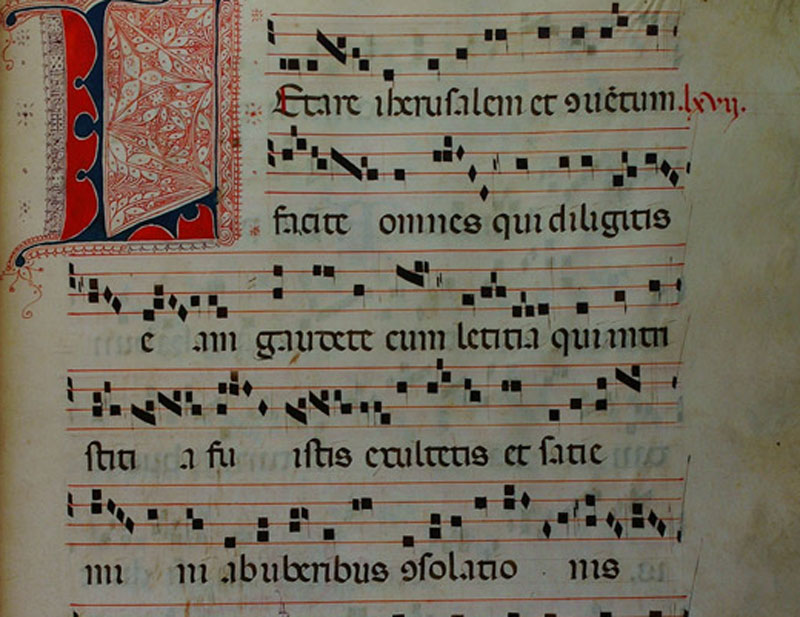 LEtare iherusalem et ꝯuẽtum.lxvij.
facite omnes qui diligitis
e am gaudete cum letitia qui in tri
stiti a fu istis exultetis et satie
mi ni ab uberibus ꝯsolatio nis